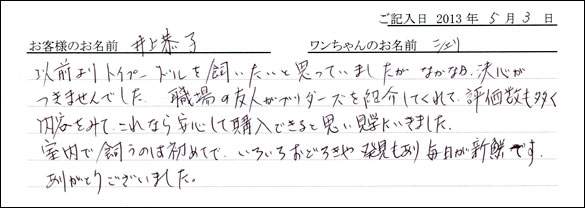 ご記入日 2013年 5月 3日
お客様のお名前 井上恭子 ワンちゃんのお名前 シェリ
以前よりトイプードルを飼いたいと思っていましたが なかなか、決心が
つきませんでした。職場の友人がブリーダーズを紹介してくれて、評価数も多く
内容をみて、これなら安心して購入できると思い見学にいきました。
室内で飼うのは初めてで、いろいろおどろきや 発見もあり 毎日が新鮮です。
ありがとうございました。